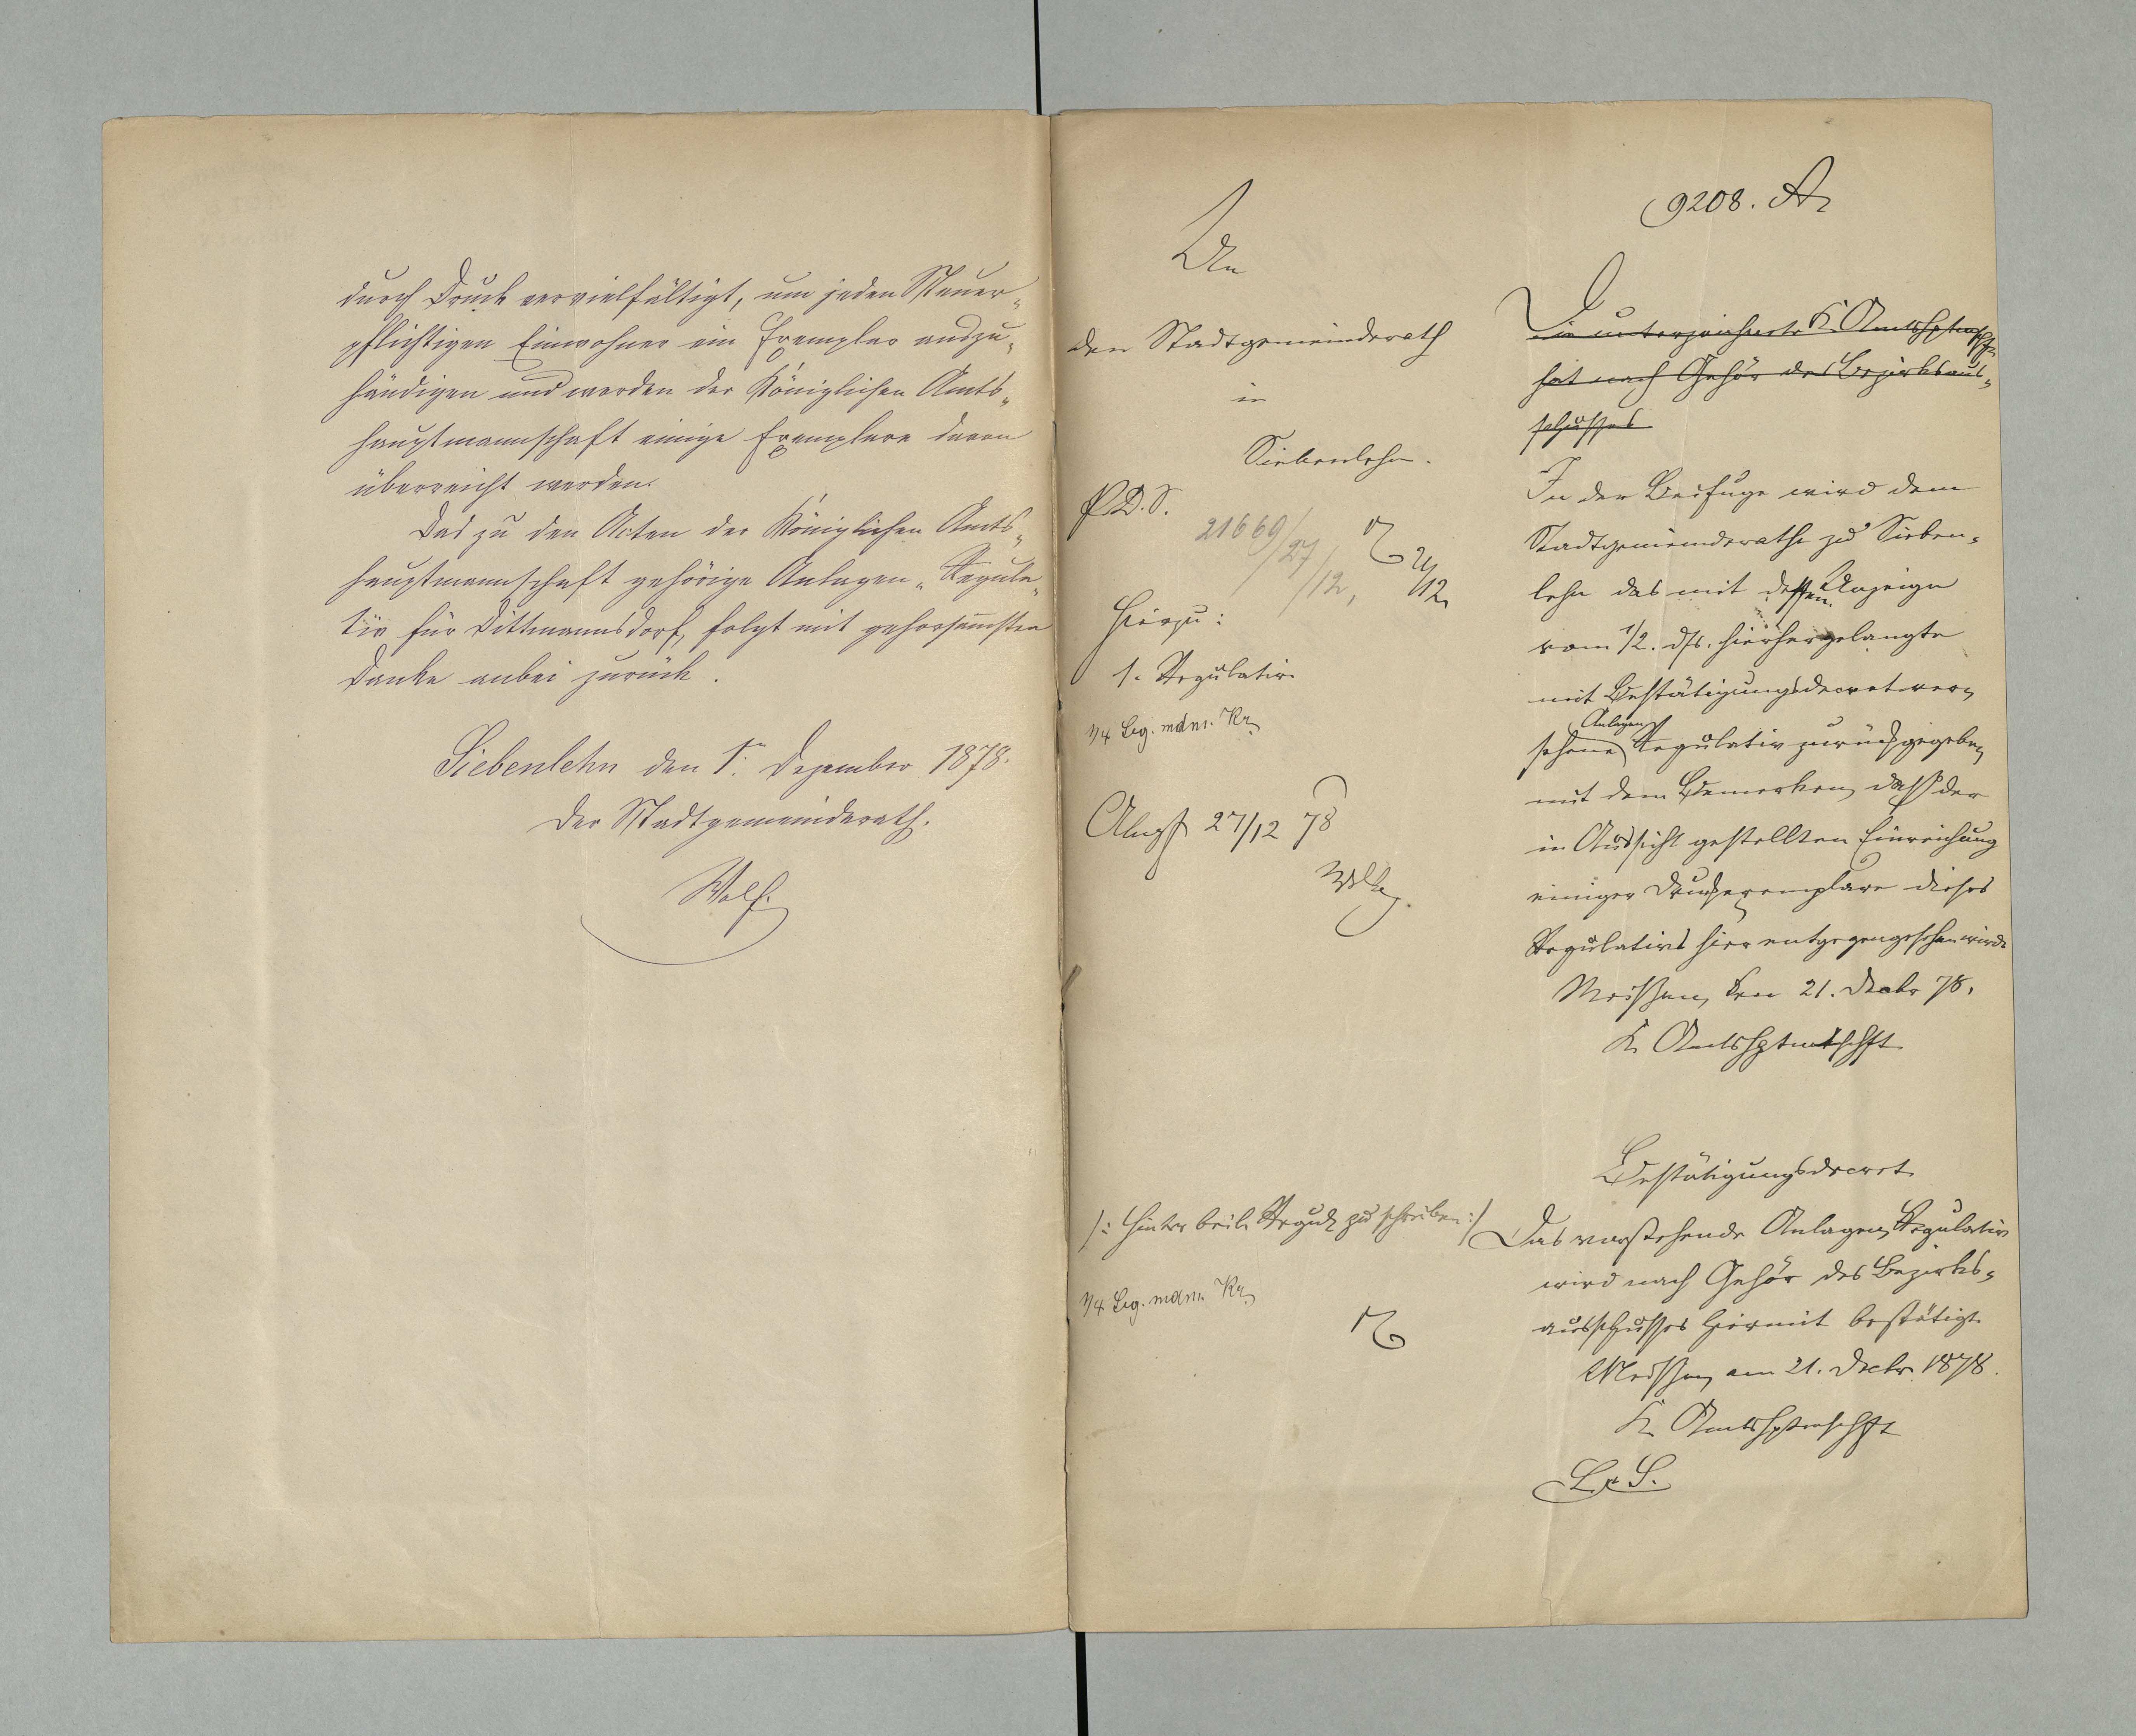 durch Druck vervielfältigt, um jeden Steuer-
pflichtigen Einwohner ein Exemplar auszu-
händigen und werden der Königlichen Amts-
hauptmannschaft einige Exemplare davon
überreicht werden.
Das zu den Acten der Königlichen Amts-
hauptmannschaft gehörige Anlagen-Regula-
tiv für Dittmannsdorf, folgt mit gehorsamsten
Danke anbei zurück.
Siebenlehn den 1. Dezember 1878.
Der Stadtgemeinderath.
Wolf.
An
den Stadtgemeinderath
in
Siebenlehn.
P.D.S.
21669/27/12,
21/12
Hierzu:
1. Regulativ
1/4 Kr
Abgesch 27/12 78
/: Hinter beil. Regul zu schreiben :/
1/4 Kr
9208. A
Die unterzeichnete K. Amtshptmschft
hat nach Gehör des Bezirksaus-
schusses
In der Beifuge wird dem
Stadtgemeinderathe zu Sieben-
lehn das mit dessen Anzeige
vom 1/2. dss. hierher gelangte
mit Bestätigungsdecret ver-
sehene Anlagen Regulativ zurückgegeben
mit dem Bemerken, daß der
in Aussicht gestellten Einreichung
einiger Druckexemplare dieses
Regulativs hier entgegengesehen wird.
Meißen, den 21. Decbr 78.
K. Amtshptmschft
Bestätigungsdecret
Das vorstehende Anlagen Regulativ
wird nach Gehör des Bezirks-
ausschusses hiermit bestätigt
Meißen, am 21. Decbr. 1878.
K. Amtshptmschft
L. S.